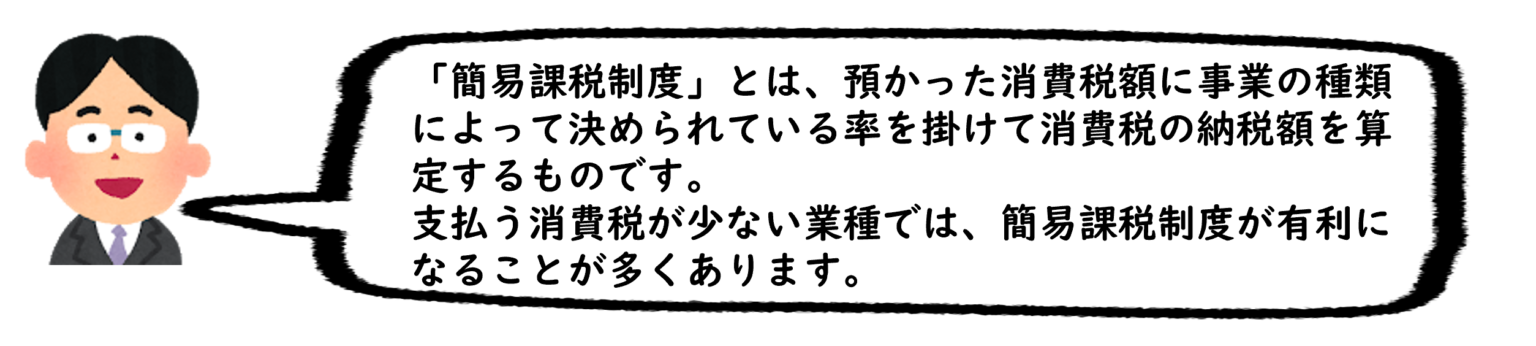 「簡易課税制度」とは、預かった消費税額に事業の種類
によって決められている率を掛けて消費税の納税額を算
定するものです。
支払う消費税が少ない業種では、簡易課税制度が有利に
なることが多くあります。